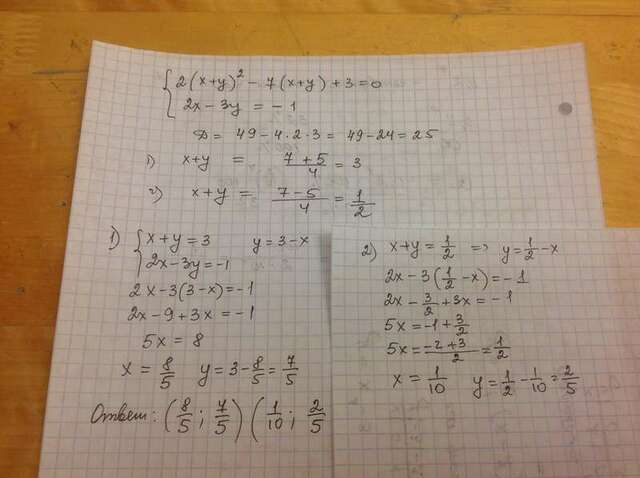 2(x+y)² - 7(x+y) + 3 = 0
2x - 3y = -1
D = 49 - 4·2·3 = 49 - 24 = 25
1) x+y = (7+5)/4 = 3
2) x+y = (7-5)/4 = 1/2
1) x+y = 3 y = 3-x
2x - 3y = -1
2x - 3(3-x) = -1
2x - 9 + 3x = -1
5x = 8
x = 8/5 y = 3 - 8/5 = 7/5
Ответ: (8/5; 7/5) (1/10; 2/5
2) x+y = 1/2 => y = 1/2 - x
2x - 3(1/2 - x) = -1
2x - 3/2 + 3x = -1
5x = -1 + 3/2
5x = (-2+3)/2 = 1/2
x = 1/10 y = 1/2 - 1/10 = 2/5